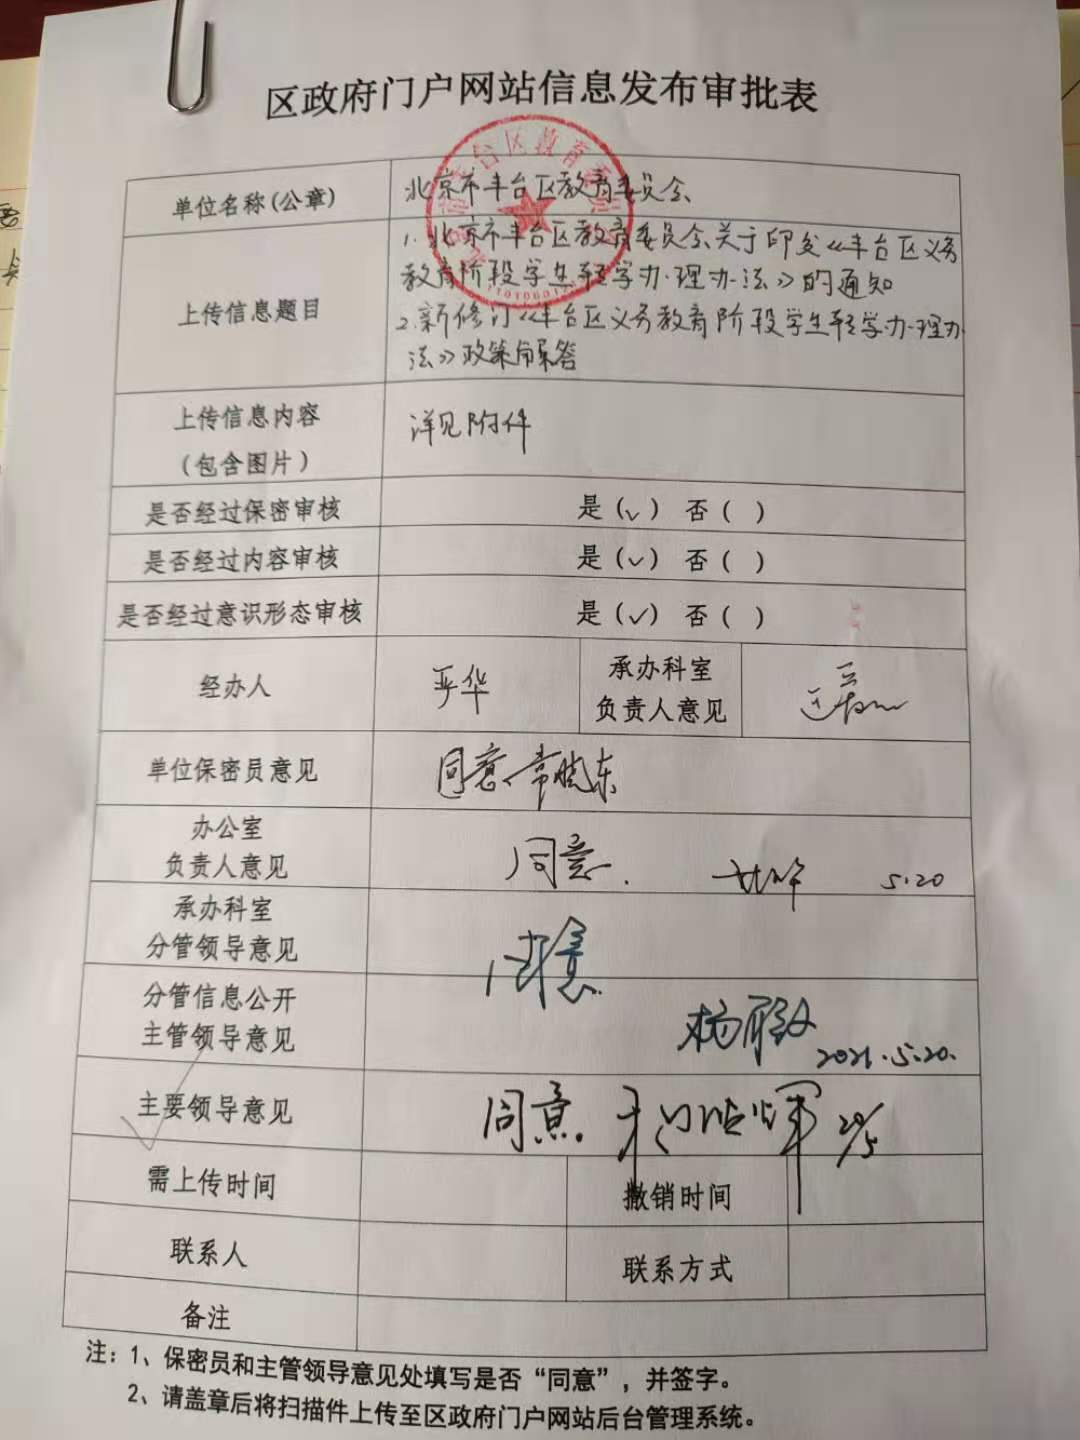 区政府门户网站信息发布审批表
单位名称(公章)
北京市丰台区教育委员会
上传信息题目
1.北京市丰台区教育委员会关于印发《丰台区义务
教育阶段学生转学办理办法》的通知
2.新修订《丰台区义务教育阶段学生转学办理办
法》政策解答
上传信息内容
(包含图片)
详见附件
是否经过保密审核
是(√) 否( )
是否经过内容审核
是(√) 否( )
是否经过意识形态审核
是(√) 否( )
经办人
严华
承办科室
负责人意见
单位保密员意见
同意 常晓东
办公室
负责人意见
同意. 5.20
承办科室
分管领导意见
同意
分管信息公开
主管领导意见
2021.5.20.
主要领导意见
同意. 20/5
需上传时间
撤销时间
联系人
联系方式
备注
注：1、保密员和主管领导意见处填写是否“同意”，并签字。
2、请盖章后将扫描件上传至区政府门户网站后台管理系统。